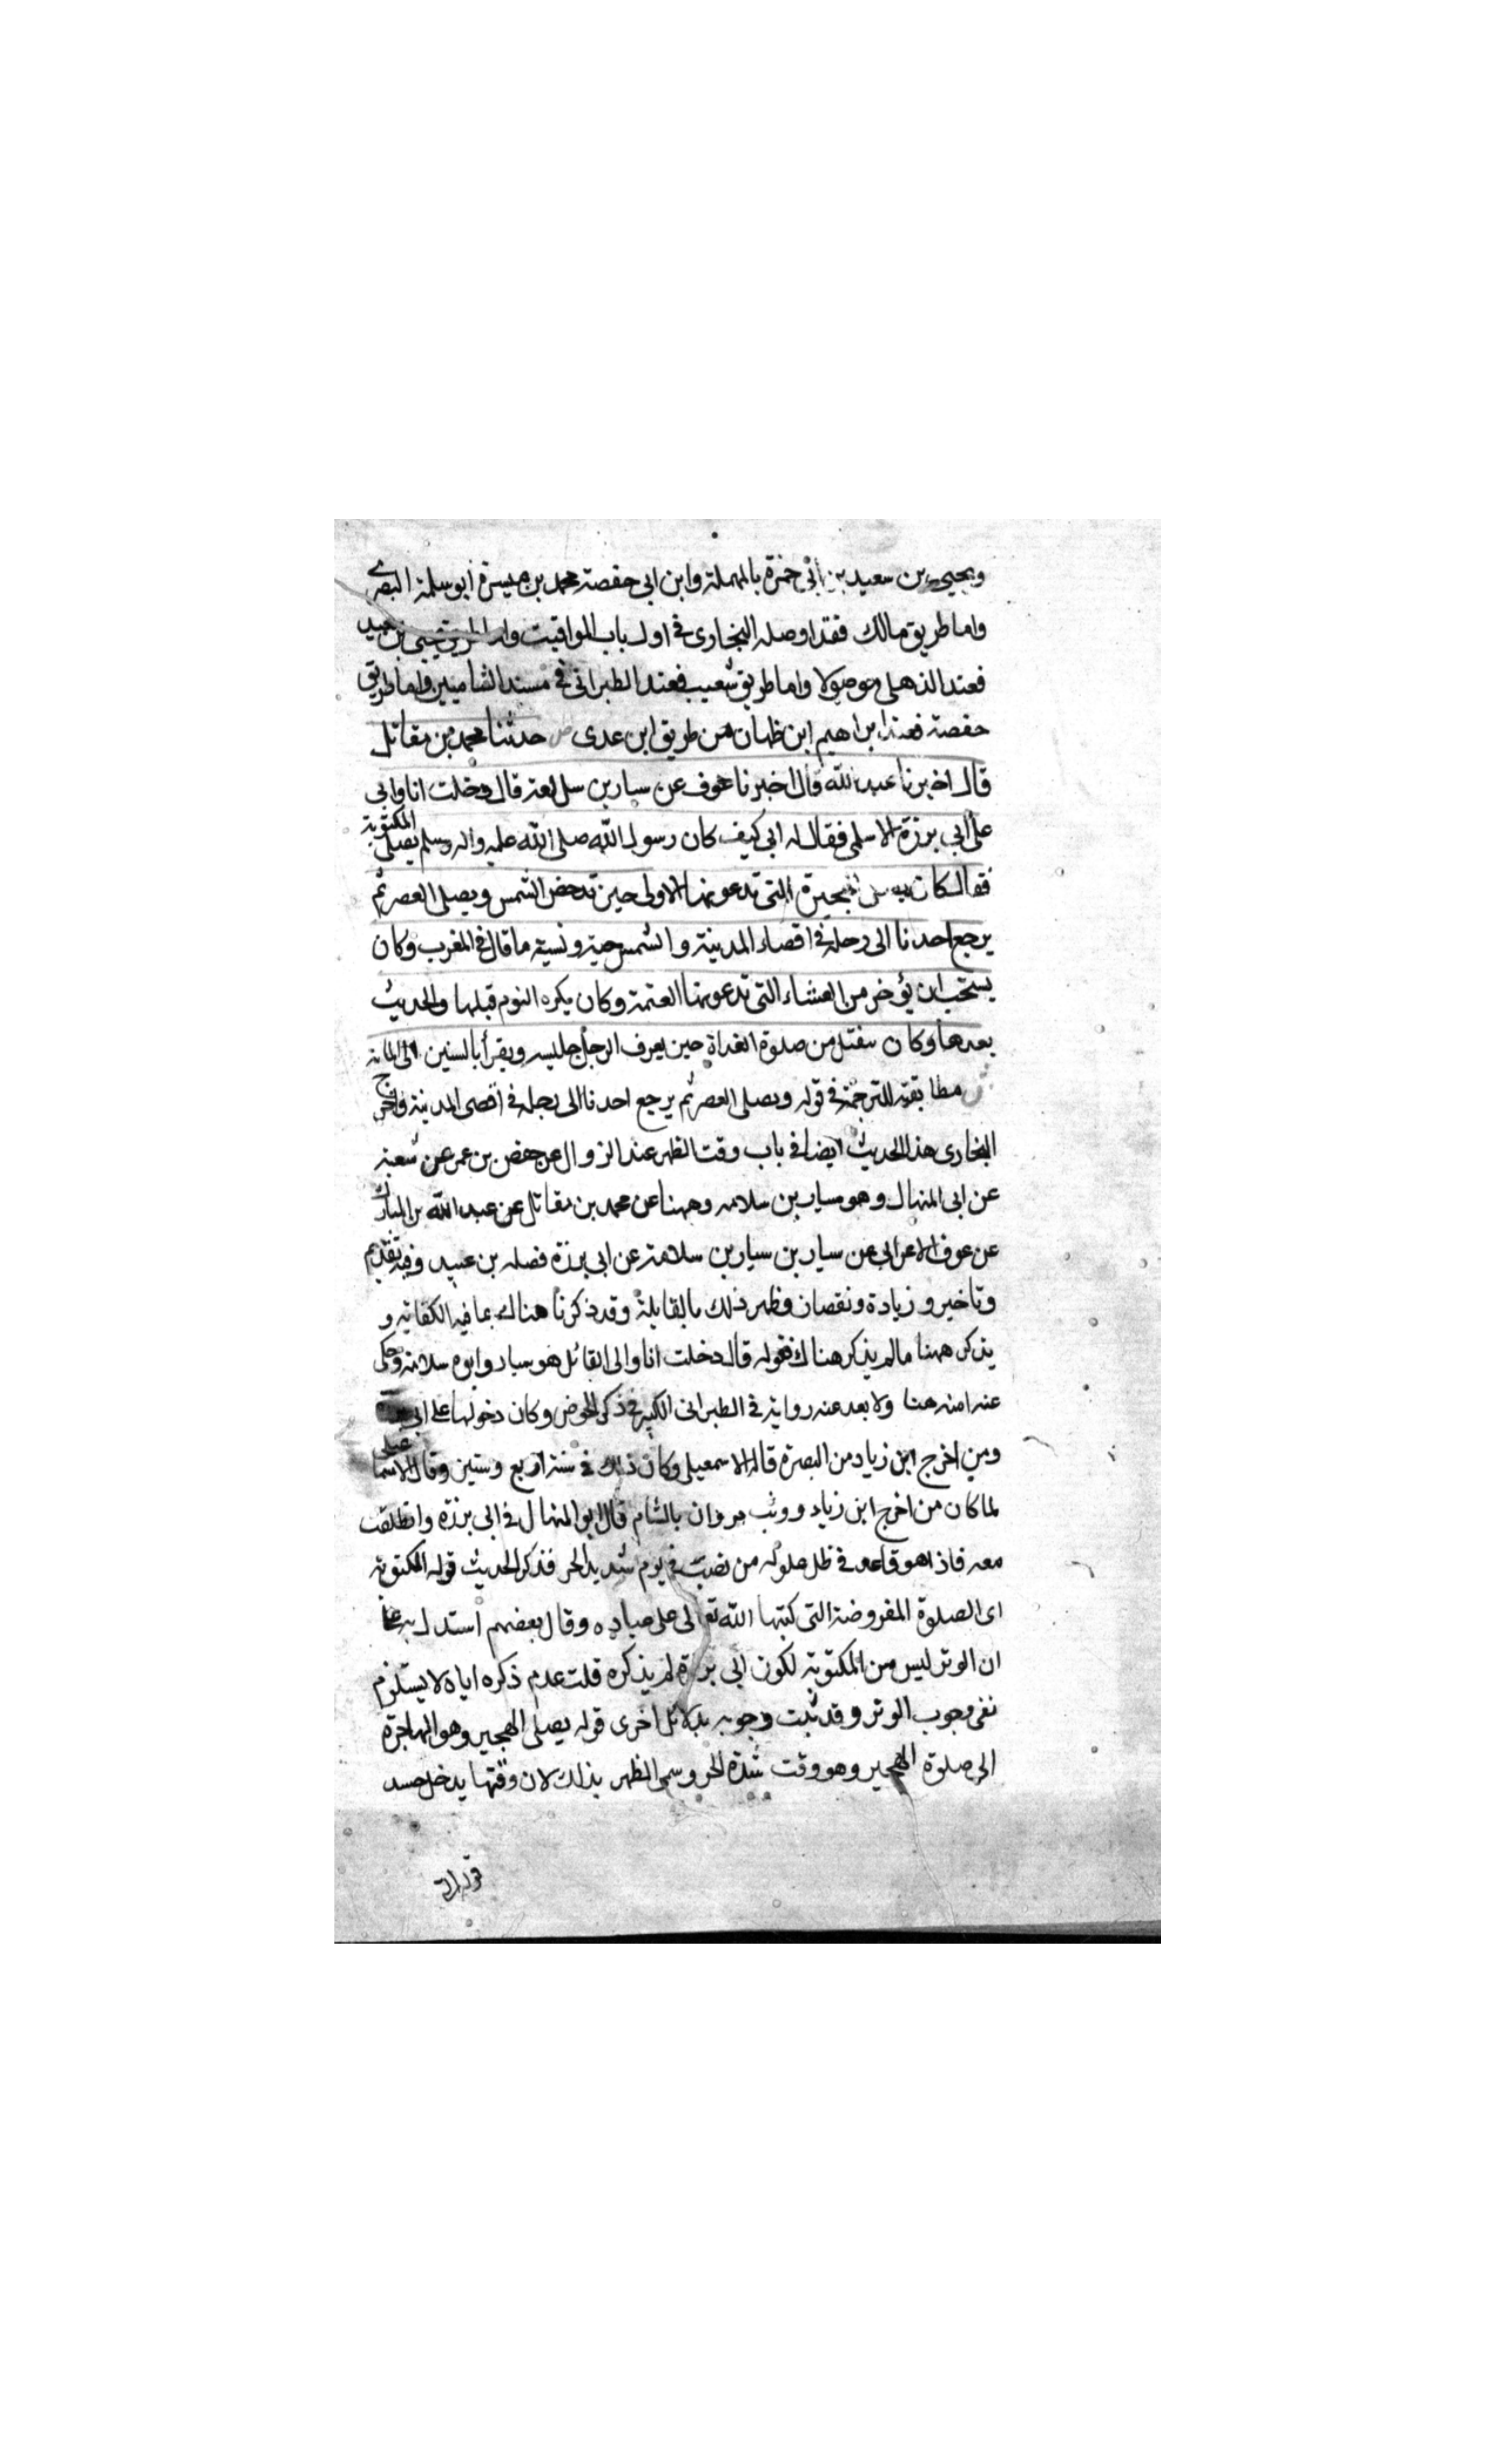 ويحيى بن سعيد بن أبي حمزة بالمهملة وابن ابى حفصة محمد بن ميسرة أبو سلمة البصرى
واما طريق مالك فقد اوصله البخارى فى اول باب المواقيت واما طريق يحيى بن سعيد
فعند الذهلى موصولا واما طريق شعيب فعند الطبرانى فى مسند الشاميين واما طريق
حفصة فعند ابراهيم ابن طهان من طريق ابن عدى ص حدثنا محمد بن مقاتل
قال اخبرنا عبد الله قال اخبرنا عوف عن سيار بن سلامة قال دخلت انا وابى
على ابى برزة الاسلمى فقال له ابى كيف كان رسول الله صلى الله عليه واله وسلم يصلى المكتوبة
فقال كان يصلى الهجيرة التى تدعونها الاولى حين تدحض الشمس ويصلى العصر ثم
يرجع احدنا الى رحله فى اقصاء المدينة والشمس حية ونسيت ما قال فى المغرب وكان
يستحب ان يؤخر من العشاء التى تدعونها العتمة وكان يكره النوم قبلها والحديث
بعدها وكان ينفتل من صلوة الغداة حين يعرف الرجل جليسه ويقرأ بالستين الى المائة
ش مطابقته للترجمة فى قوله ويصلى العصر ثم يرجع احدنا الى رحله فى اقصى المدينة واخرج
البخارى هذا الحديث ايضا فى باب وقت الظهر عند الزوال عن حفص بن عمر عن شعبة
عن ابى المنهال وهو سيار بن سلامه وههنا عن محمد بن مقاتل عن عبد الله بن المبارك
عن عوف الاعرابى عن سيار بن سيار بن سلامة عن ابى برزة فضله بن عبيد وفيه تقديم
وتاخير و زيادة ونقصان وظهر ذلك بالمقابلة وقد ذكرنا هناك بما فيه الكفاية و
يذكر ههنا مالم يذكر هناك فقوله قال دخلت انا وابى القائل هو سيار وابوه سلامة وحكى
عنه ابنه هنا ولا بعد عنه رواية فى الطبرانى الكبير فى ذكر الحوض وكان دخولها على ابى
ومن اخرج ابن زياد من البصرة قاله الاسمعيلى وكان ذلك فى سنة اربع وستين وقال الاسماعيلى
لما كان من اخرج ابن زياد ووثب مروان بالشام قال ابو المنهال فى ابى برزة وانطلقت
معه فاذا هو قاعد فى ظل علو له من نصب فى يوم شديد الحر فذكر الحديث قوله المكتوبة
اى الصلوة المفروضة التى كتبها الله تعالى على عباده وقال بعضهم استدل به على
ان الوتر ليس من المكتوبة لكون ابى برزة لم يذكره قلت عدم ذكره اياه لا يستلزم
نفى وجوب الوتر وقد ثبت وجوبه بدلائل اخرى قوله يصلى الهجير وهو الهاجرة
اى صلوة الهجير وهو وقت شدة الحر وسمى الظهر بذلك لان وقتها يدخل حينئذ